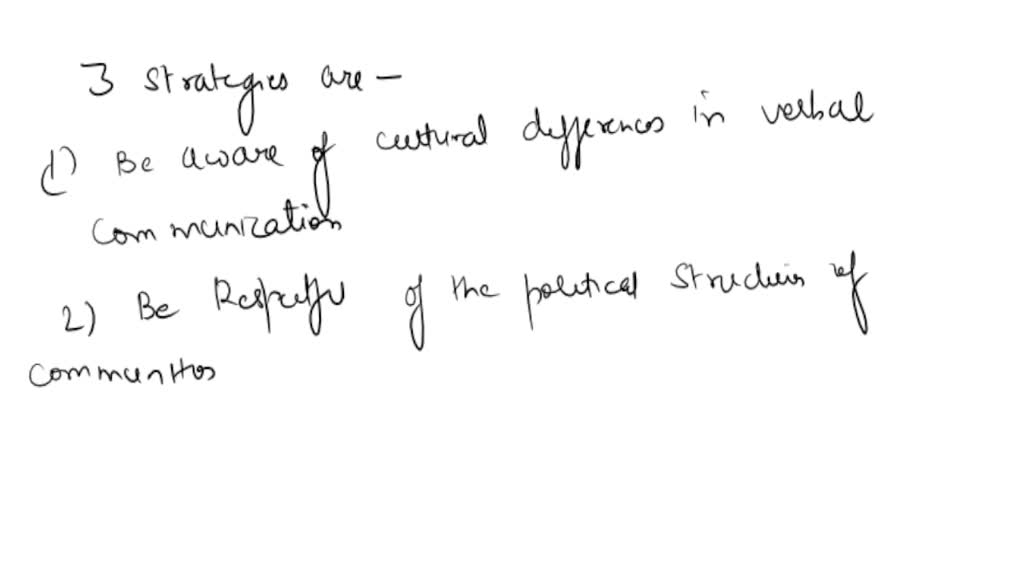 3 strategies are –
1) Be aware of cultural differences in verbal
communication
2) Be Respectful of the political structures of
communities